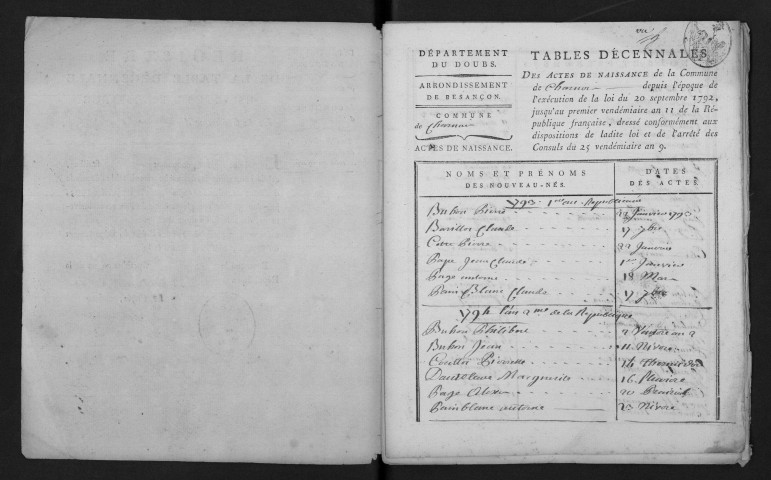 DÉPARTEMENT
DU DOUBS.
ARRONDISSEMENT
DE BESANÇON.
COMMUNE
de Charnay
ACTES DE NAISSANCE.
vu
TABLES DÉCENNALES
DES ACTES DE NAISSANCE de la Commune
de Charnay depuis l'époque de
l'exécution de la loi du 20 septembre 1792,
jusqu'au premier vendémiaire an 11 de la Ré-
publique française, dressé conformément aux
dispositions de ladite loi et de l'arrêté des
Consuls du 25 vendémiaire an 9.
NOMS ET PRÉNOMS
DES NOUVEAU-NÉS.
DATES
DES ACTES.
1793 1er an Republicain
Buhon Pierre 22 Janvier 1793
Claude 17 7bre
Pierre 22 Janvier
Page Jean Claude 1er Janvier
Page antoine 18 Mars
Pain Blanc Claude 17 7bre
1794 l'an 2me de la Republique
Buhon Philibert 2 an 2
Buhon Jean 11 Nivose
Pierrette 14 Thermidor
Marguerite 16 Pluviose
Page 20 Prairial
Painblanc antoine 20 Nivose